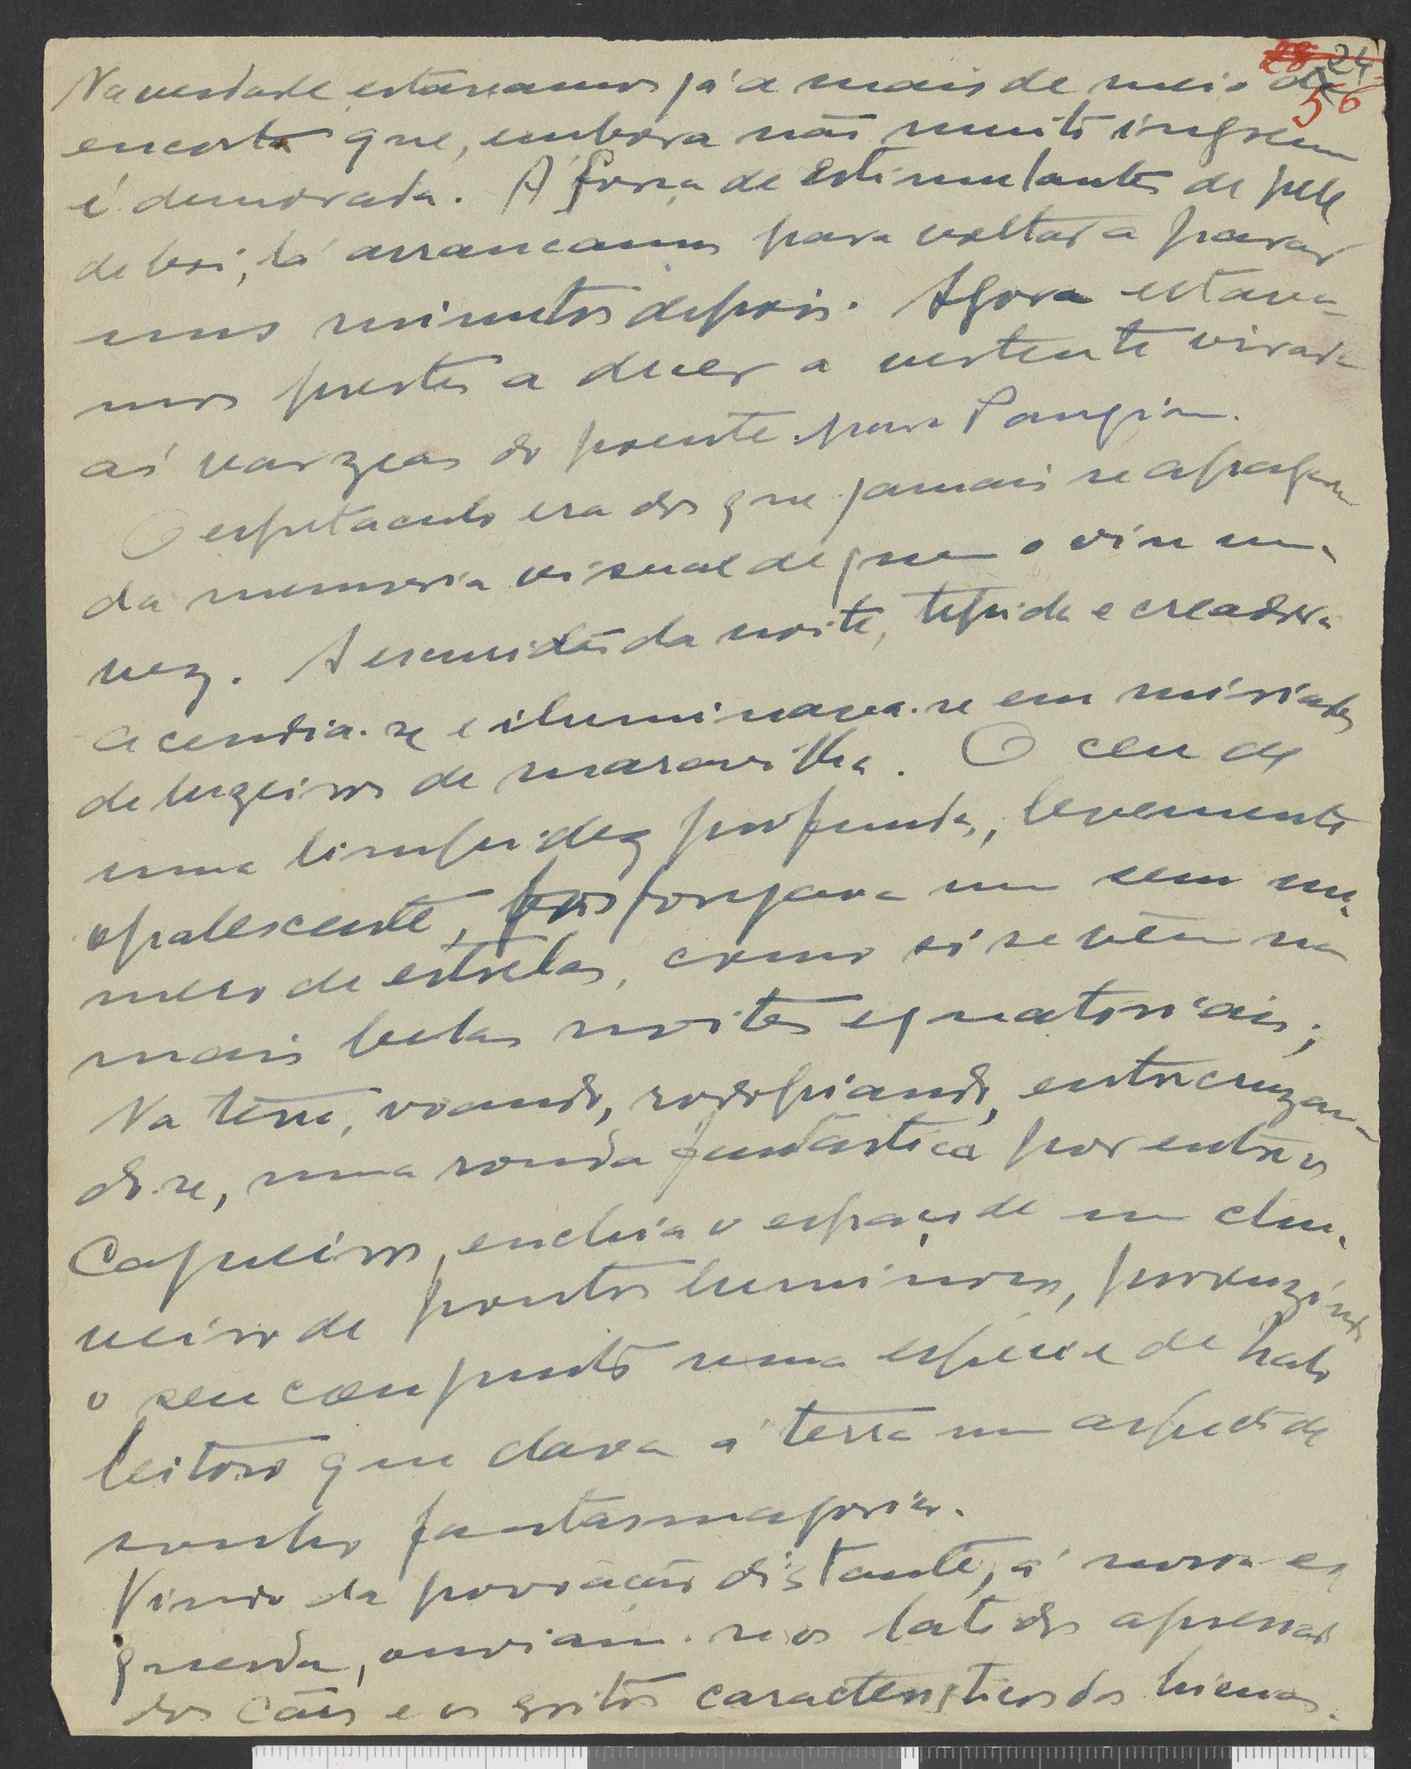 24
56
Na verdade estavamos já a mais de meio da
encosta que, embora não muito ingreme
é demorada. Á força de estimulantes de pele
de boi, lá arrancamos para voltar a parar
uns minutos depois. Agora estava-
mos prestes a descer a vertente virada
ás varzeas do poente para Pangim.
O espetaculo era dos que jamais se apagam
da memoria visual de quem o viu uma
vez. A escuridão da noite, tepida e creadora
acendia-se e iluminava-se em miriades
de luzeiros de maravilha. O ceu de
uma limpidez profunda, levemente
opalescente, fosforejava um sem nu-
mero de estrelas, como si se vêm nas
mais belas noites equatoriais;
Na terra, voando, rodopiando, entrecruzan-
do-se, uma ronda fantástica por entre os
Capueiros, enchia o espaço de um chu-
veiro de pontos luminosos, produzindo
o seu conjunto uma espécie de halo
leitoso que dava á terra um aspecto de
sonho fantasmagorico.
Vindo da povoação distante, á nossa es
querda, ouviam-se os latidos apressados
dos cães e os gritos caracteristicos das hienas.